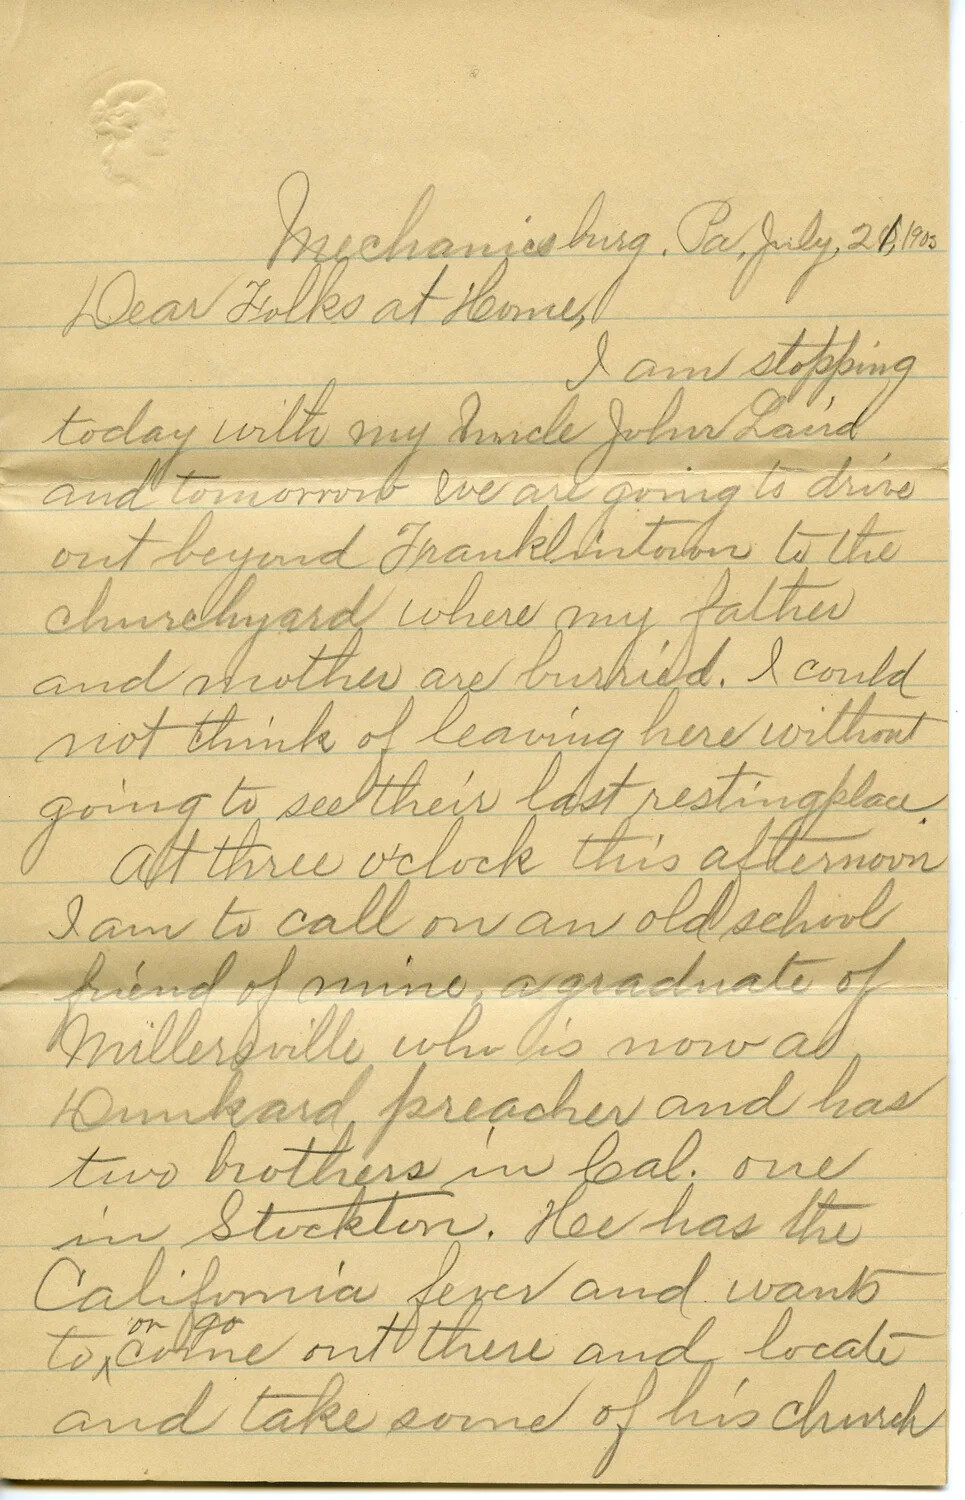 Mechanicsburg. Pa, July, 21, 1903
Dear Folks at Home,
I am stopping
today with my Uncle John Laird
and tomorrow we are going to drive
out beyond Franklintown to the
churchyard where my father
and mother are burried. I could
not think of leaving here without
going to see their last restingplace.
At three o'clock this afternoon
I am to call on an old school
friend of mine, a graduate of
Millersville who is now a
Dunkard preacher and has
two brothers in Cal. one
in Stockton. He has the
California fever and wants
or go
to come out there and locate
and take some of his church